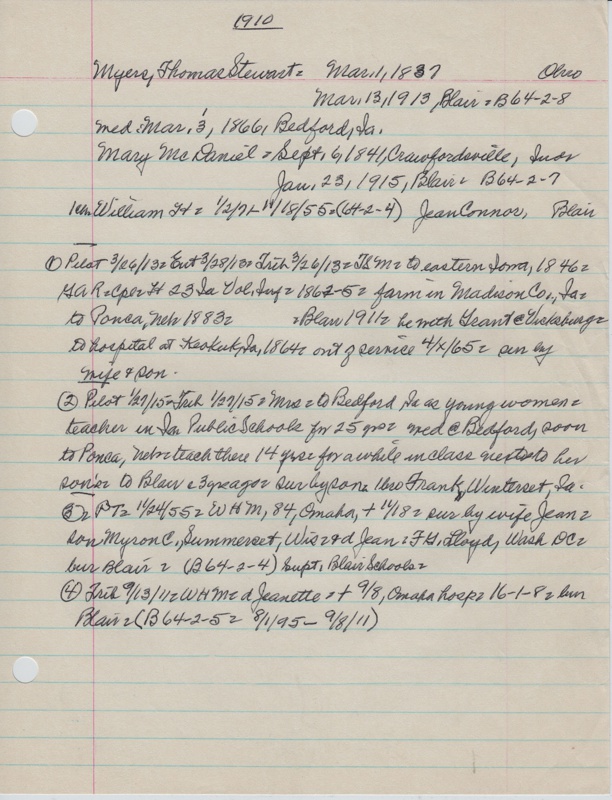 1910
Myers, Thomas Stewart = Mar. 1, 1837 Ohio
Mar. 13, 1913, Blair = B64-2-8
med: Mar. 3, 1866, Bedford, Ia.
Mary McDaniel = Sept. 6, 1841, Crawfordsville, Ind
Jan. 23, 1915, Blair = B64-2-7
William H = 1/2/71 - 11/18/55 = (64-2-4) Jean Connor, Blair
① Pilot 3/26/13 = Ent 3/28/13 = Trib 3/26/13 = TSM = to eastern Iowa, 1846 =
GAR = Cpe = H 23 Ia Vol. Inf = 1862-5 = farm in Madison Co., Ia =
to Ponca, Neb 1883 = = Blair 1911 = he with Grant @ Vicksburg =
to hospital at Keokuk, Ia, 1864 = out of service 4/x/65 = sur by
wife & son.
② Pilot 1/27/15 = Trib 1/27/15 = Mrs = to Bedford, Ia as young women =
teacher in Ia Public Schools for 25 yrs = med @ Bedford, soon
to Ponca, Neb = teach there 14 yrs = for a while in class next to her
son = to Blair c 3 yrs ago = sur by son = 1 bro Frank, Winterset, Ia.
③ = PT = 11/24/55 = WHM, 84, Omaha, + 11/18 = sur by wife Jean =
son Myron C., Summerset, Wis = & d Jean = F H. Floyd, Wash DC =
bur Blair = (B64-2-4) supt. Blair Schools =
④ Trib 9/13/11 = WHM = d Jeanette = + 9/8, Omaha hosp = 16-1-8 = bur
Blair = (B64-2-5 = 8/1/95 - 9/8/11)